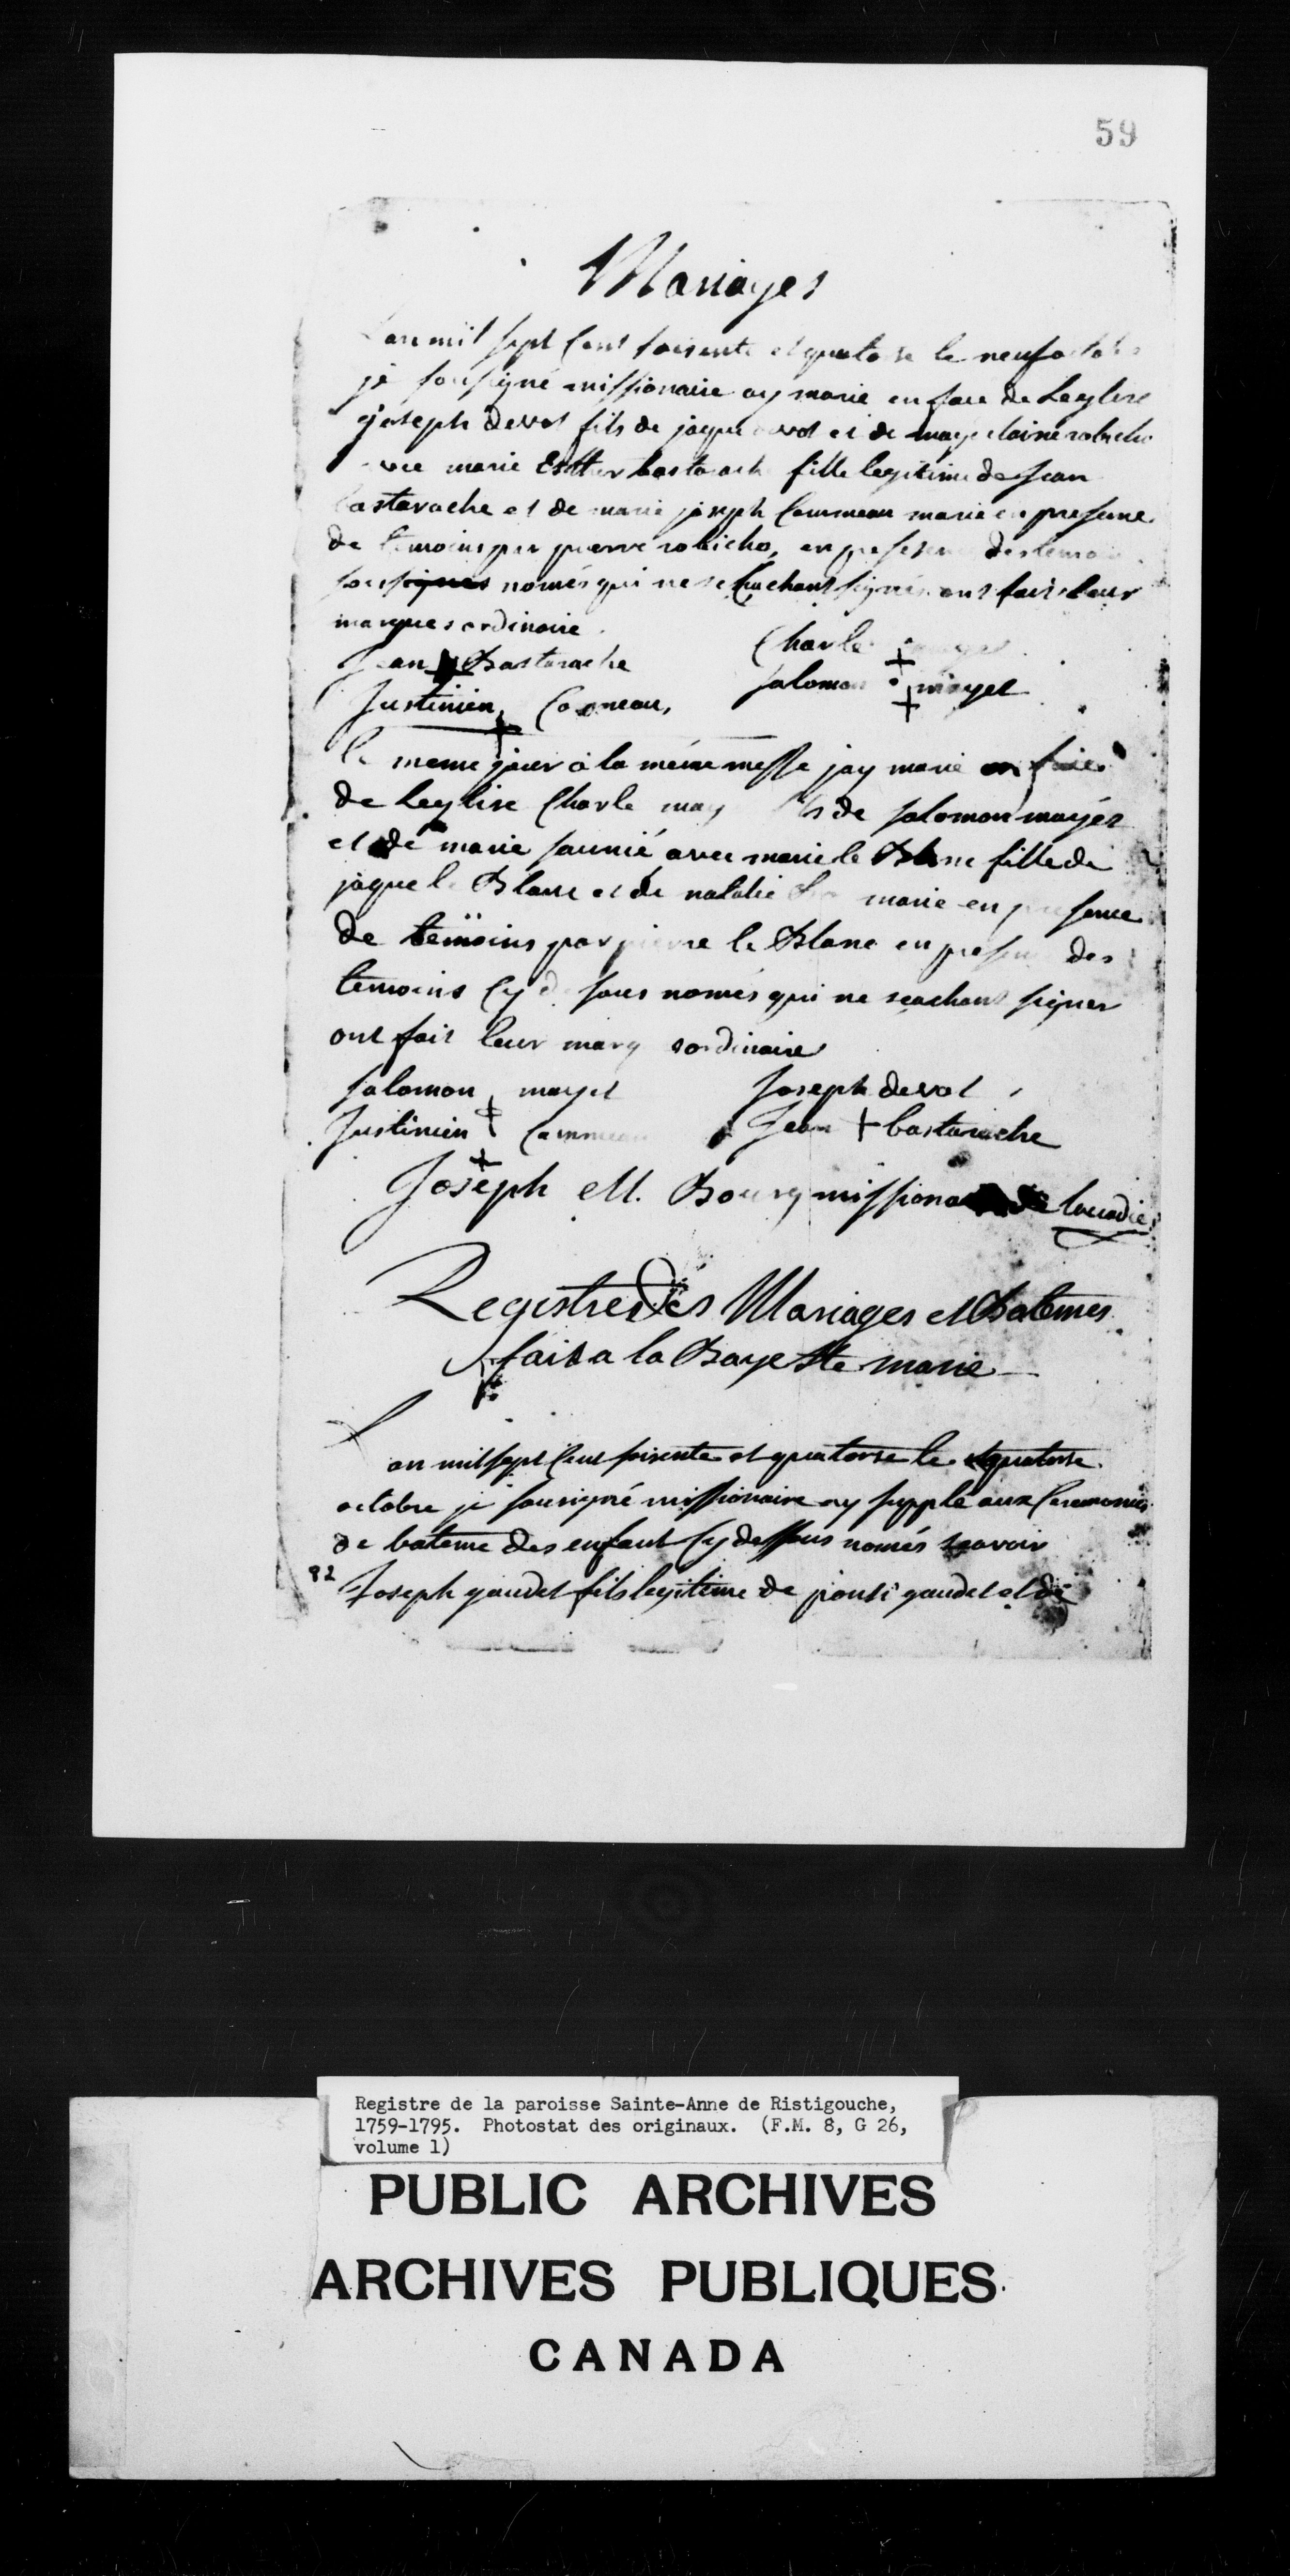 59
Mariages
an mil sept Cent soisente et quatorse le neuf octob
je sousigné missionaire ay marie en face de Leglise
joseph devot fils de jaque devot et de magdelaine robicho
avec marie Esther bastarach fille legitime de jean
bastarache et de marie joseph Commeau marie en presence
de temoins par pierre robicho, en presence des temoins
sousignes només qui ne sachant signés ont fait leur
marques ordinaire.
Charle mayet
Jean Bastarache
salomon mayet
Justinien Comeau,
le meme jour a la méme messe jay marie en face
de Leglise Charle may fils de salomon mayér
et de marie saunié avec marie le Blanc fille de
jaque le Blanc et de natalie marie en presence
de temoins par pierre le Blanc en presence des
temoins Cy de sous només qui ne scachant signer
ont fait leur marq ordinaire
salomon mayet Joseph devot
Justinien Commeau Jean bastarache
Joseph M. Bourg missionaire de Laccadie
Registre Des Mariages et Batemes
fait a la Baye Ste marie
L
an mil sept Cent soisente et quatorse le quatorse
octobre je sousigné missionaire ay supplé aux Ceremonies
de bateme des enfant Cy dessous només scavoir
82 Joseph gaudet fils legitime de gaudet et de
Registre de la paroisse Sainte-Anne de Ristigouche,
1759-1795. Photostat des originaux. (F.M. 8, G 26,
volume 1)
PUBLIC ARCHIVES
ARCHIVES PUBLIQUES
CANADA